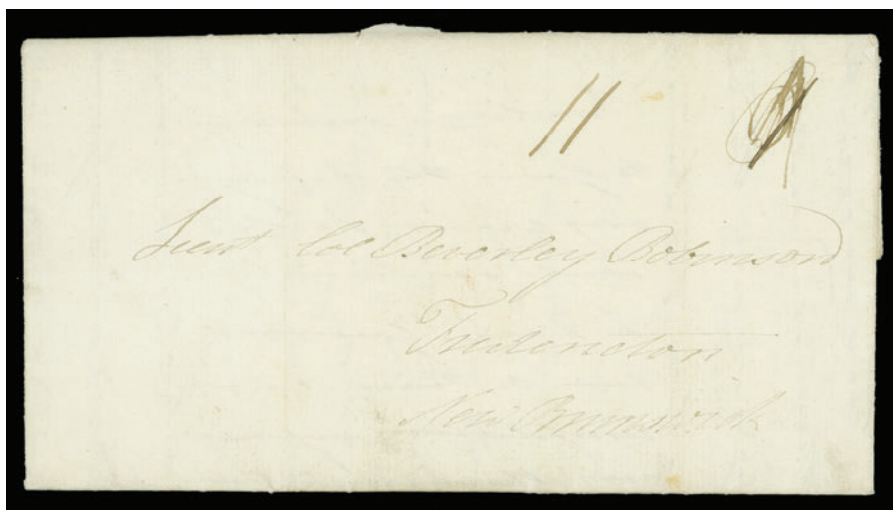 11
Lieut Col Beverley Robinson
Fredericton
New Brunswick